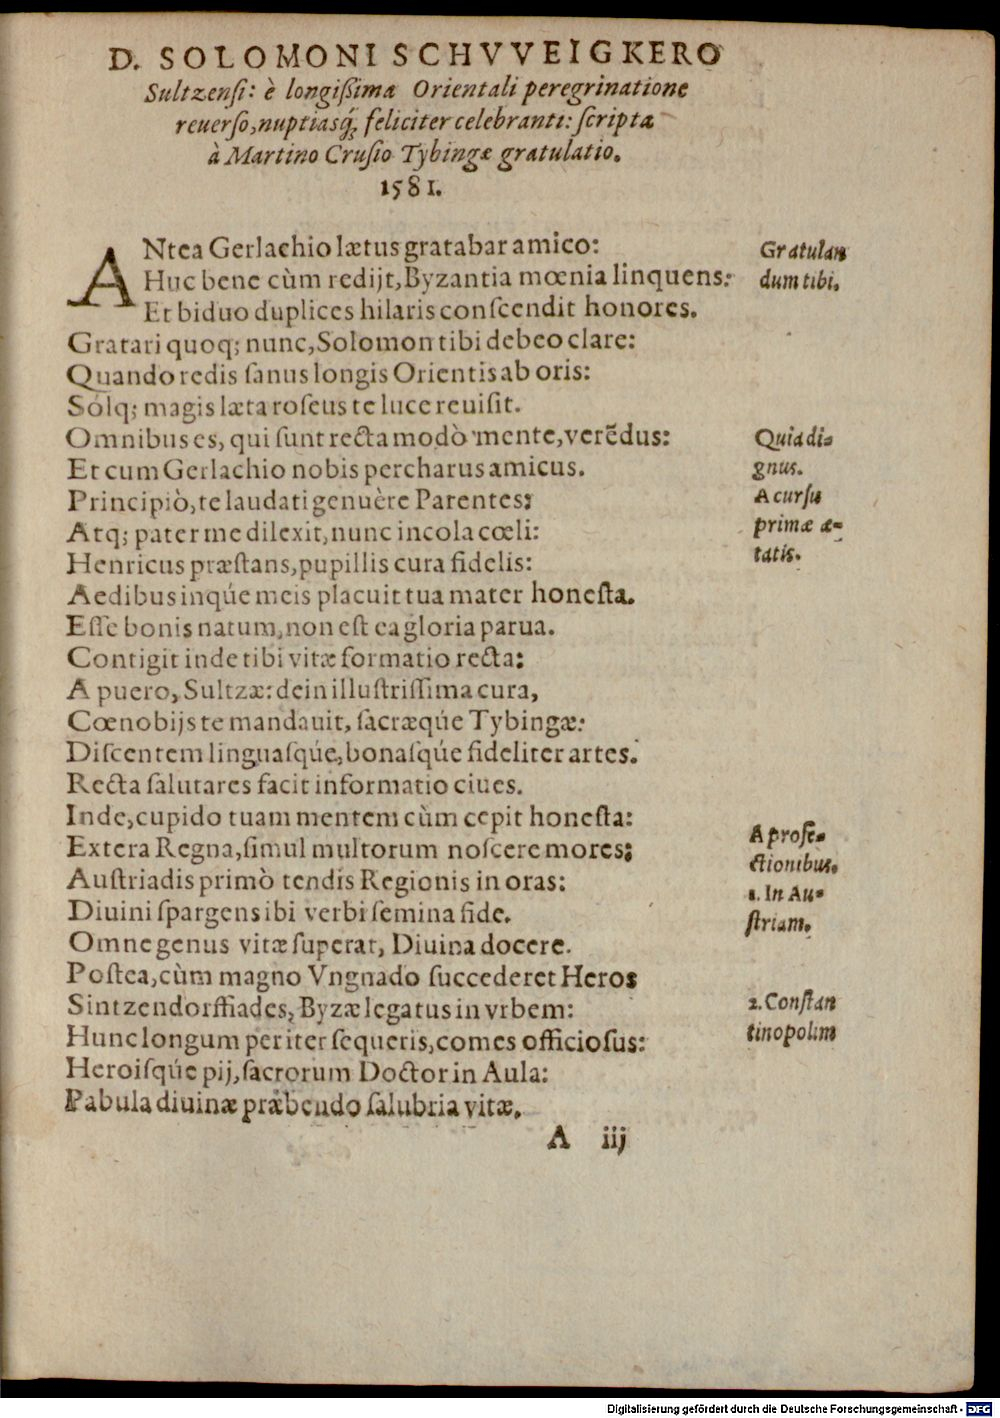 D. SOLOMONI SCHVVEIGKERO
Sultzenſi: è longiſsima Orientali peregrinatione
reuerſo, nuptiasq́ꝫ feliciter celebranti: ſcripta
à Martino Cruſio Tybingæ gratulatio.
1581.
ANtea Gerlachio lætus gratabar amico:
Huc bene cùm redijt, Byzantia mœnia linquens:
Et biduo duplices hilaris conſcendit honores.
Gratulan
dum tibi.
Gratari quoq; nunc, Solomon tibi debeo clare:
Quando redis ſanus longis Orientis ab oris:
Sólq; magis læta roſeus te luce reuiſit.
Omnibus es, qui ſunt recta modò mente, verẽdus:
Et cum Gerlachio nobis percharus amicus.
Quia di-
gnus.
Principiò, te laudati genuère Parentes:
Atq; pater me dilexit, nunc incola cœli:
Henricus præſtans, pupillis cura fidelis:
A curſu
primæ æ-
tatis.
Aedibus inqúe meis placuit tua mater honeſta.
Eſſe bonis natum, non eſt ea gloria parua.
Contigit inde tibi vitæ formatio recta:
A puero, Sultzæ: dein illuſtriſſima cura,
Cœnobijs te mandauit, ſacræqúe Tybingæ:
Diſcentem linguaſqúe, bonaſqúe fideliter artes.
Recta ſalutares facit informatio ciues.
Inde, cupido tuam mentem cùm cepit honeſta:
Extera Regna, ſimul multorum noſcere mores:
Auſtriadis primò tendis Regionis in oras:
Diuini ſpargens ibi verbi ſemina fide.
A profe-
ctionibus.
1. In Au-
ſtriam.
Omne genus vitæ ſuperat, Diuina docere.
Poſtea, cùm magno Vngnado ſuccederet Heros
Sintzendorffiades, Byzæ legatus in vrbem:
Hunc longum per iter ſequeris, comes officioſus:
2. Conſtan
tinopolim
Heroiſqúe pij, ſacrorum Doctor in Aula:
Pabula diuinæ præbendo ſalubria vitæ.
A iij
Digitalisierung gefördert durch die Deutsche Forschungsgemeinschaft - DFG